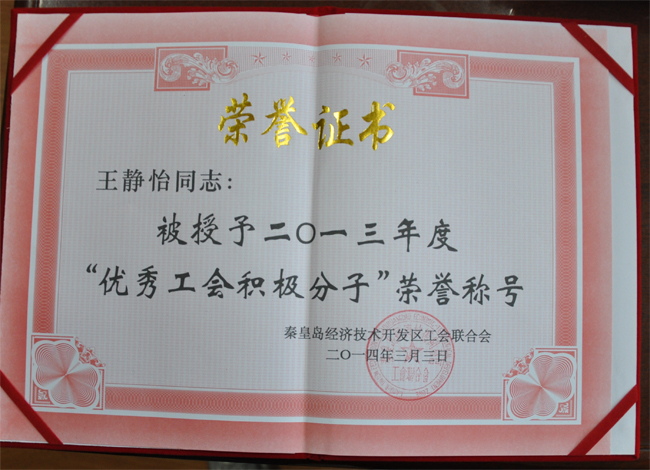 荣誉证书
王静怡同志：
被授予二〇一三年度
“优秀工会积极分子”荣誉称号
秦皇岛经济技术开发区工会联合会
二〇一四年三月三日